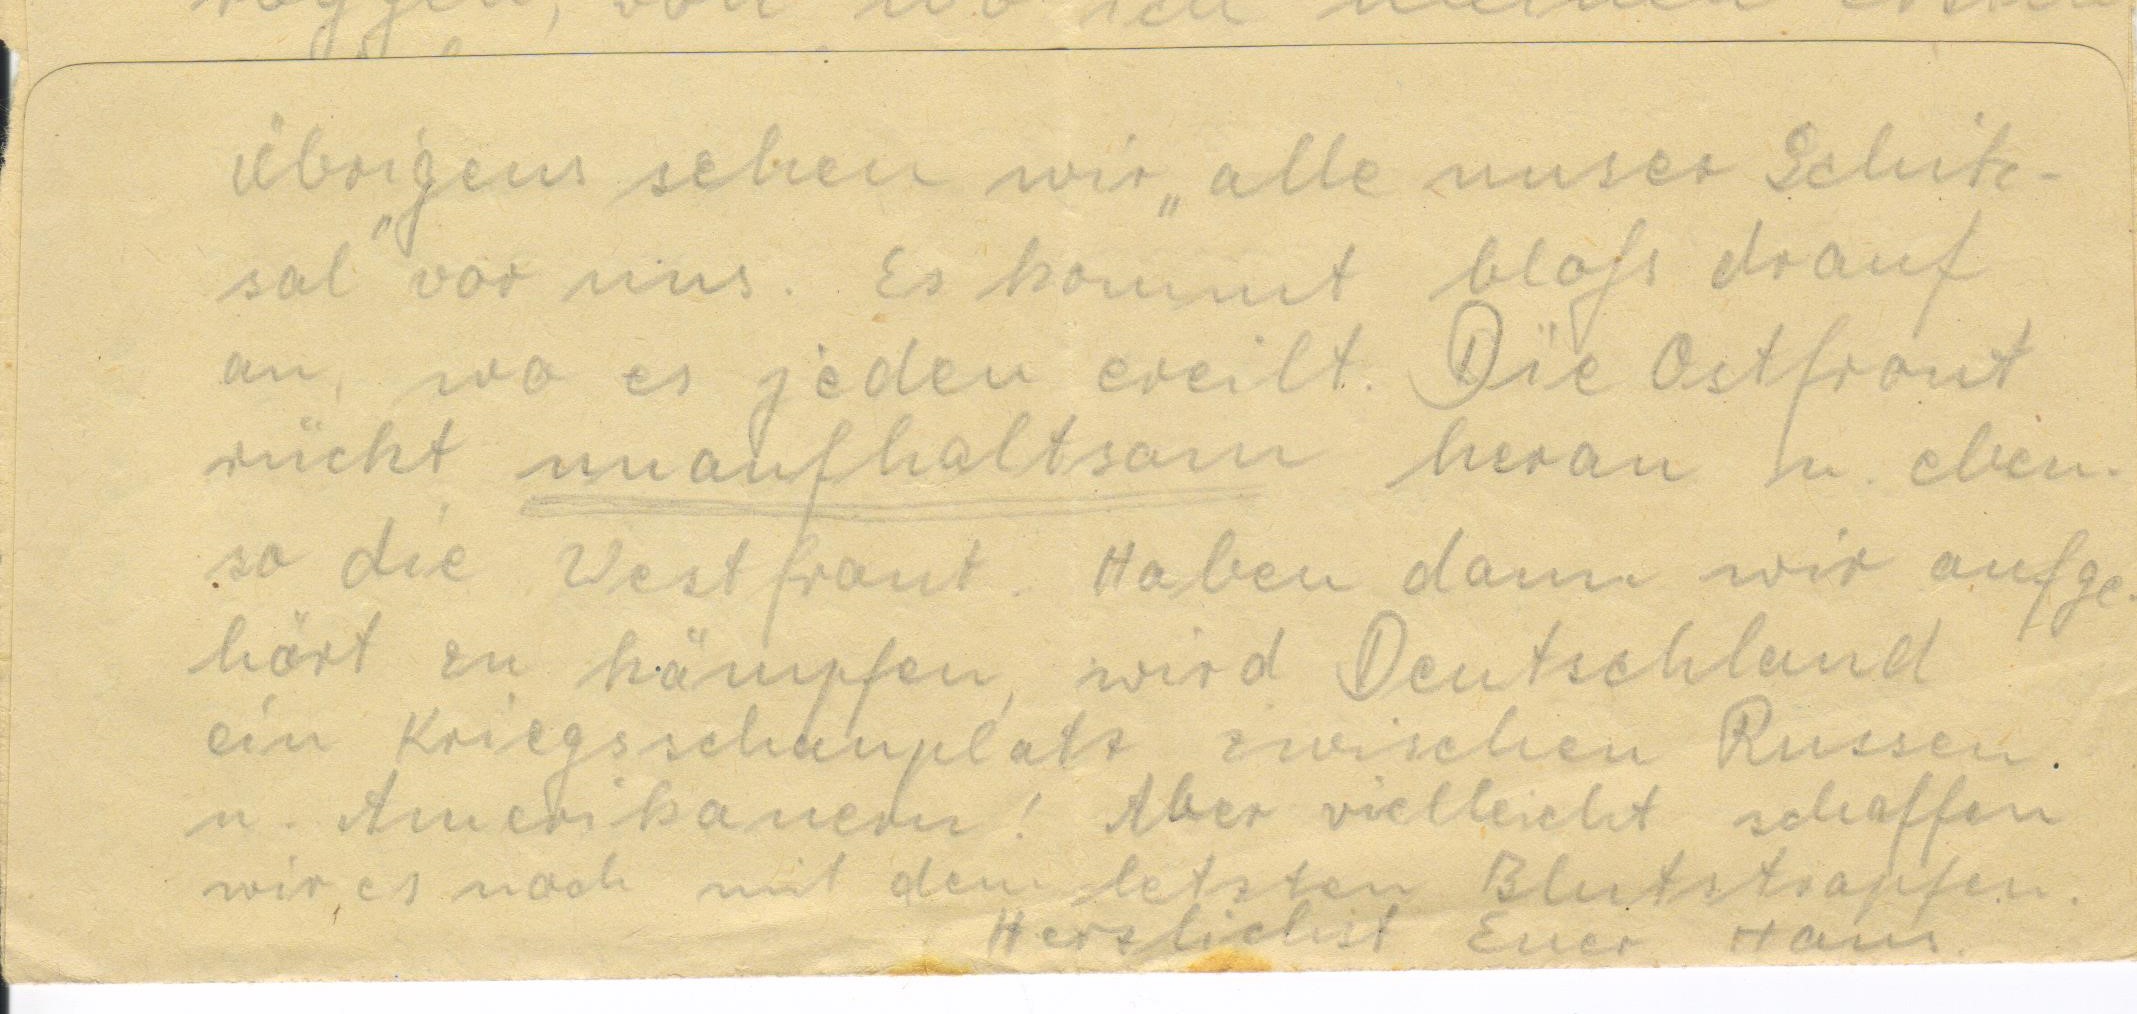 roggen, von wo ich meinen ersten
Übrigens sehen wir „alle unser Schick-
sal" vor uns. Es kommt bloß drauf
an, wo es jeden ereilt. Die Ostfront
rückt unaufhaltsam heran u. eben-
so die Westfront. Haben dann wir aufge-
hört zu kämpfen, wird Deutschland
ein Kriegsschauplatz zwischen Russen
u. Amerikanern! Aber vielleicht schaffen
wir es noch mit dem letzten Blutstropfen.
Herzlichst Euer Hans.